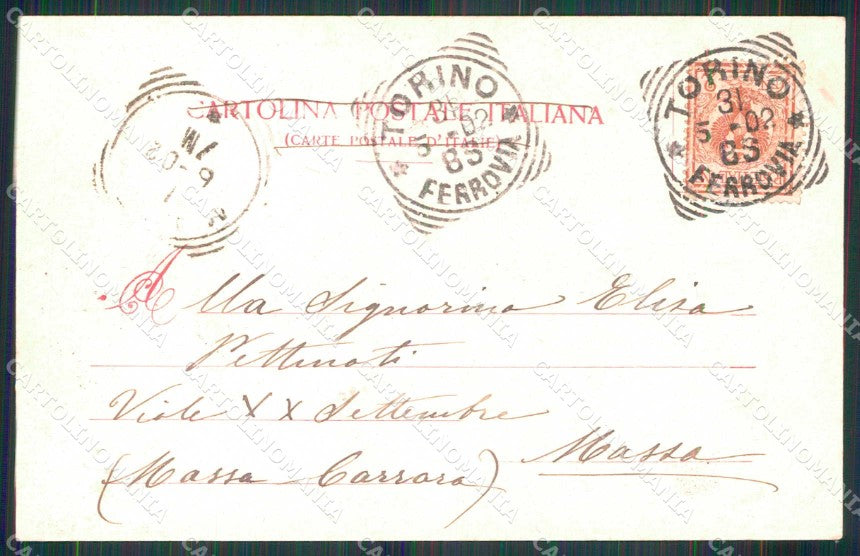 CARTOLINA POSTALE ITALIANA
(CARTE POSTALE D'ITALIE)
TORINO
31
5 - 02
8S
FERROVIA
TORINO
31
5 - 02
8S
FERROVIA
6-02
Alla Signorina Elisa
Pettinati
Viale XX Settembre
Massa
(Massa Carrara)
CARTOLINOMANIA